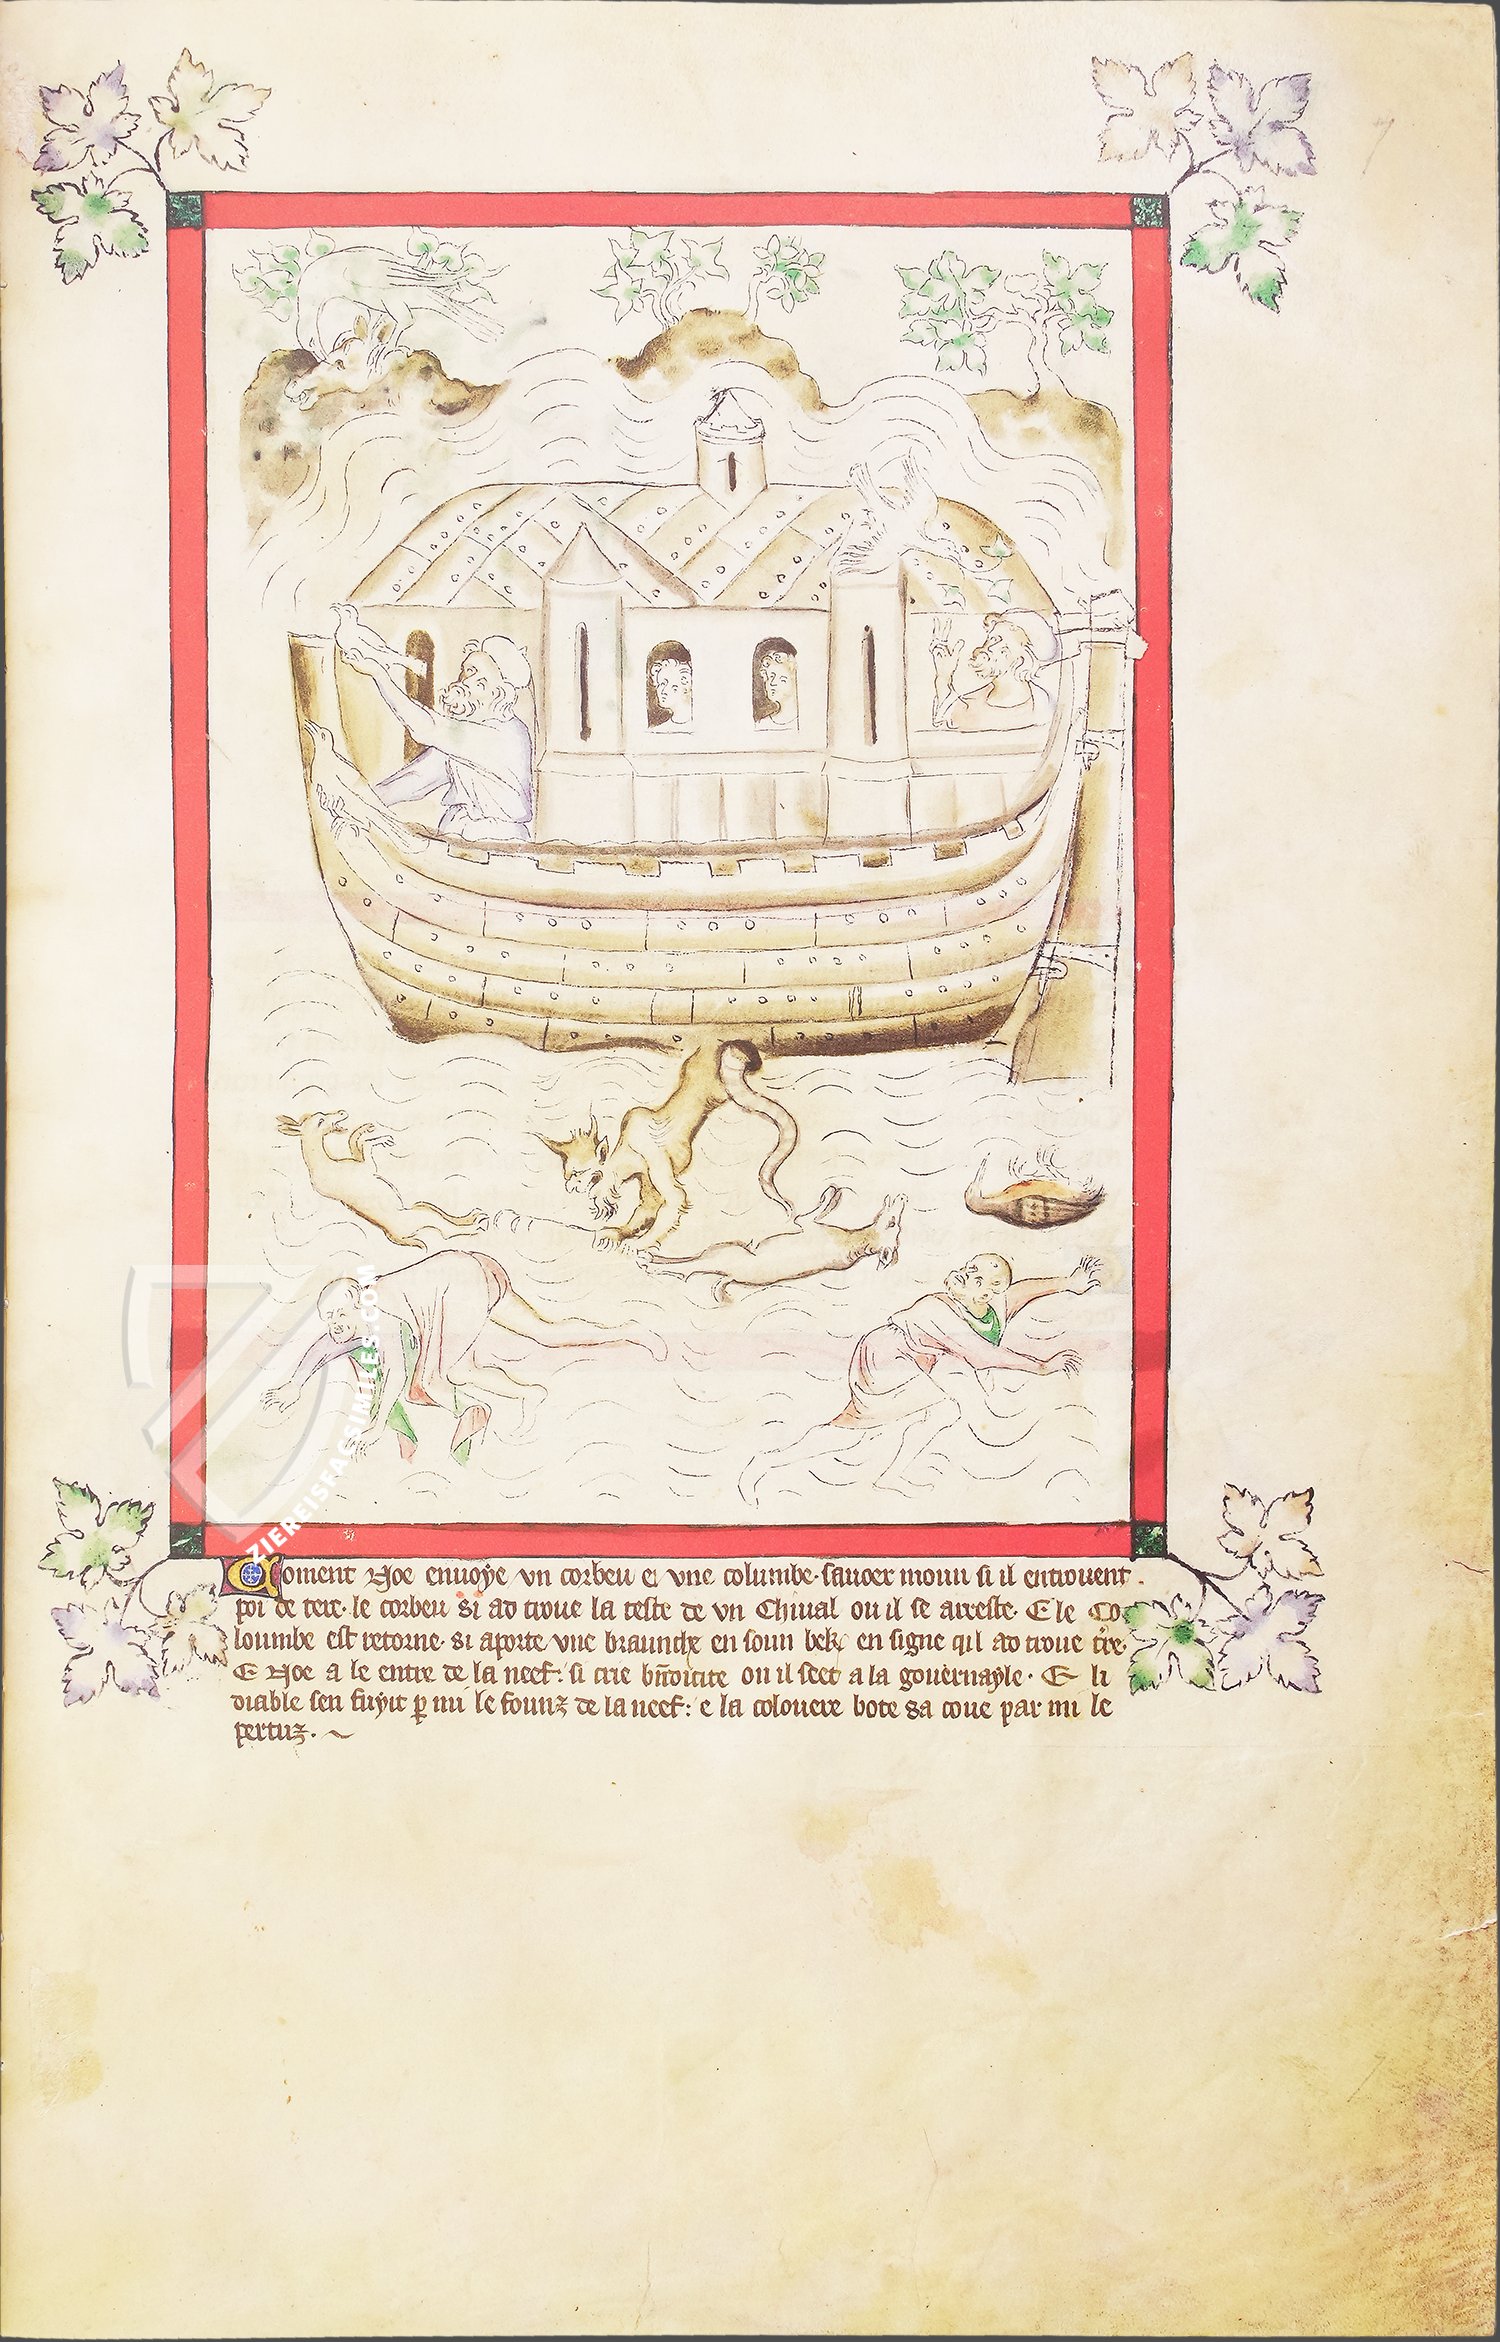 Coment Noe enuoye vn corbeu et vne columbe· sauoer moun si il entrouent
poi de tere· le corbeu si ad troue la teste de vn Chiual ou il se arreste· E le Co
loumbe est retorne· si aporte vne braunche en soun bek en signe qil ad troue tere·
E Noe a le entre de la neef: si crie bñdicite ou il seet a la gouernayle· E li
diable sen fuyit p mi le founz de la neef: e la colouere bote sa coue par mi le
pertuz·
ZIEREISFACSIMILES.COM